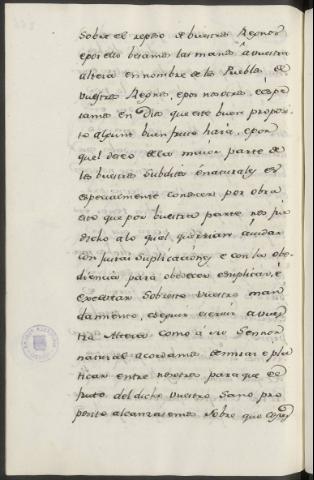 sobre el reposo de buestros Regnos
e por ello besamos las manos á vuestra
alteza en nombre de los Pueblos de
vuestros Regnos, e por nosotros, e espe-
ramos en Dios que este buen propos-
ito algunt buen fruto hará, e por
quel deseo de la maior parte de
los buestros subditos é naturales es
especialmente conoscer por obra
esto que por buestra parte nos fue
dicho a lo qual querrian ayudar
con justas suplicaciones, e con la obe-
diencia para obedecer e suplicar, é
executar sobresto vuestro man-
damiento, e seguir e servir a vues-
tra Alteza como á su Sennor
natural acordamos de mirar e pla-
ticar entre nosotros para que el
fruto del dicho vuestro Sano pro-
posito alcanzasemos sobre que